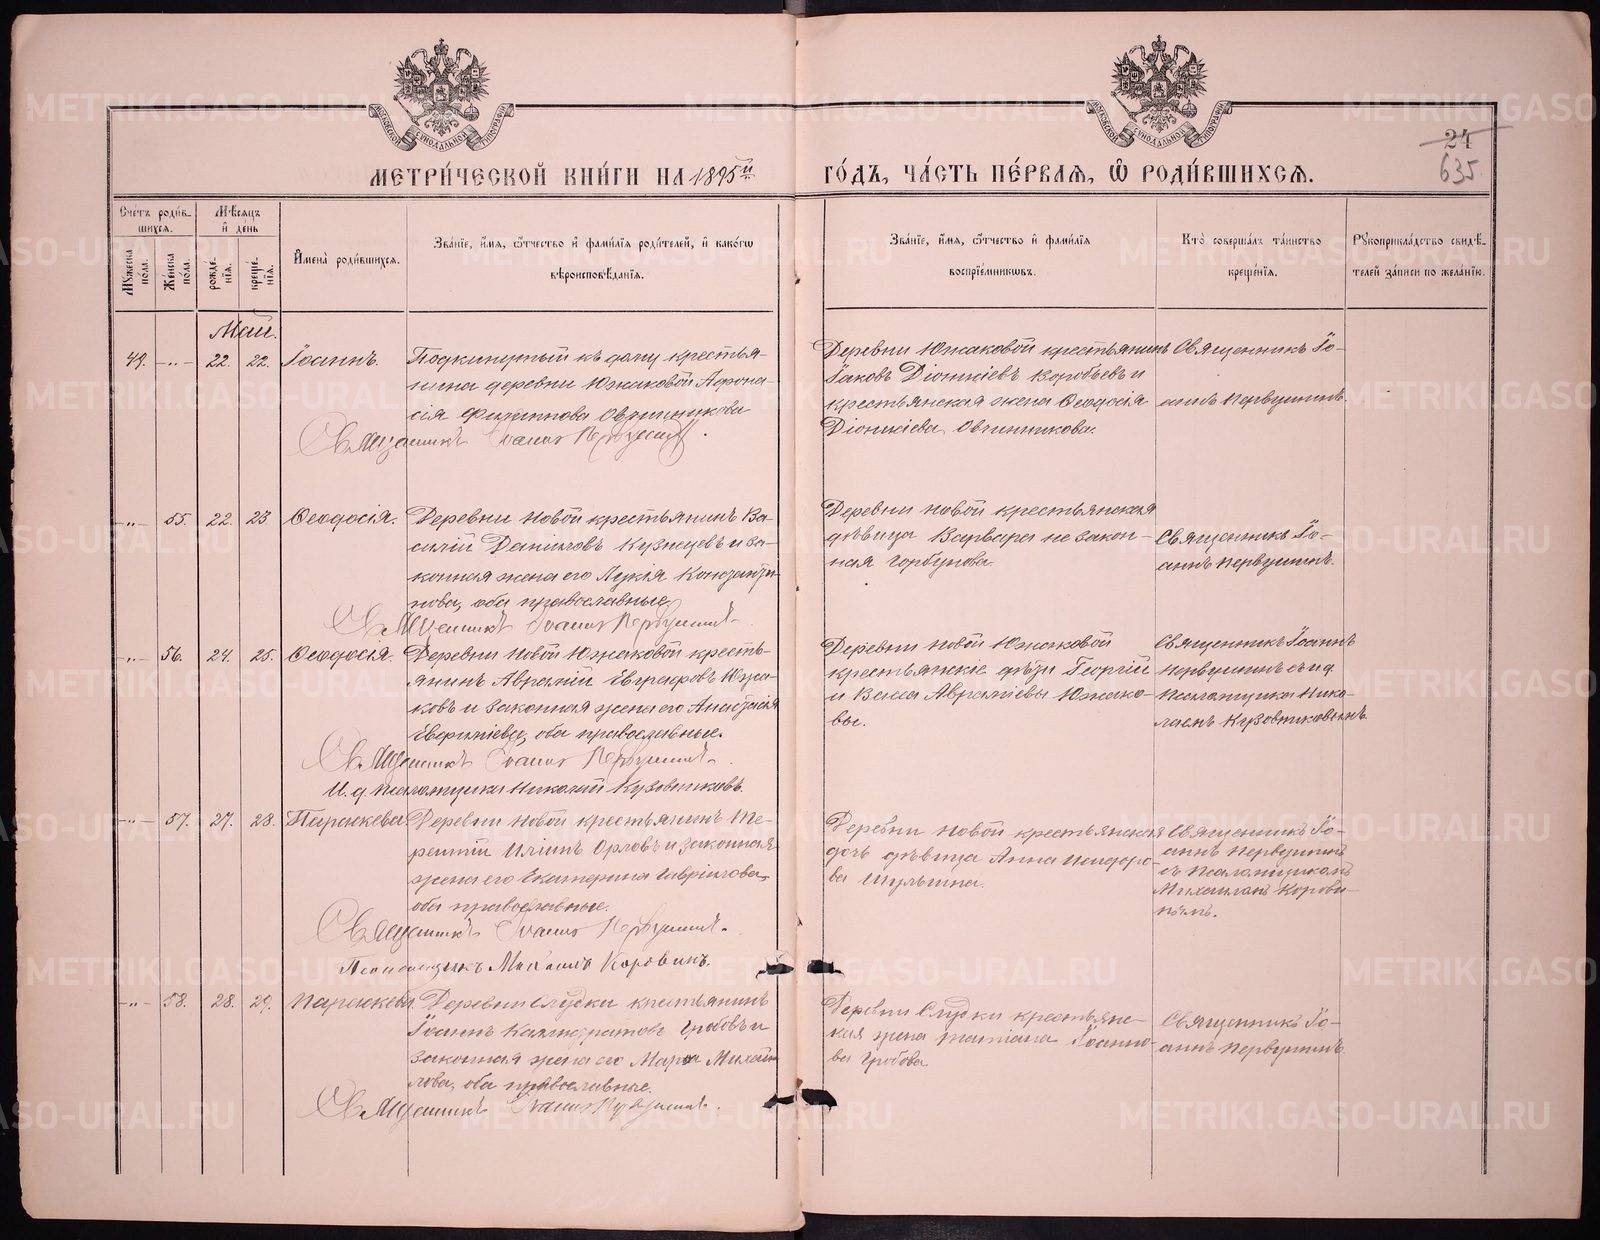 МОСКОВСКОЙ СѴНОДАЛЬНОЙ ТИПОГРАФІИ
МОСКОВСКОЙ СѴНОДАЛЬНОЙ ТИПОГРАФІИ
24
635
МЕТРИ́ЧЕСКОЙ КНИ́ГИ НА 1895й
ГО́ДЪ, ЧА́СТЬ ПЕ́РВАѦ, Ѡ҆ РОДИ́ВШИХСѦ.
Сче́тъ роди́в-
шихсѧ.
Мꙋжеска пола.
Же́нска пола.
Мѣ́сѧцъ
и҆ день
рожде́нїѧ.
креще́нїѧ.
И҆мена̀ роди́вшихсѧ.
Зва́нїе, и҆́мѧ, ѻ҆́тчество и҆ фами́лїѧ роди́телей, и҆ како́гѡ
вѣроисповѣ́данїѧ.
Зва́нїе, и҆́мѧ, ѻ҆́тчество и҆ фами́лїѧ
воспрїе́мникѡвъ.
Кто̀ соверша́лъ та́инство
креще́нїѧ.
Рꙋкоприкла́дство свидѣ́-
телей за́писи по жела́нїю.
Май.
49. -„- 22. 22. Іоаннъ. Подкинутый къ дому крестья-
нина деревни Южаковой Афона-
сія Филиппова Овчинникова
Священникъ Іоаннъ Первушинъ.
Деревни Южаковой крестьянинъ
Іаковъ Діонисіевъ Воробьевъ и
крестьянская жена Ѳеодосія
Діонисіева Овчинникова.
Священникъ Іо-
аннъ Первушинъ.
-„- 55. 22. 23 Ѳеодосія. Деревни Новой крестьянинъ Ва-
силій Даніиловъ Кузнецовъ и за-
конная жена его Лукія Константи-
нова, оба православные.
Священникъ Іоаннъ Первушинъ.
Деревни Новой крестьянская
дѣвица Варвара незакон-
ная Горбунова.
Священникъ Іо-
аннъ Первушинъ.
-„- 56. 24. 25. Ѳеодосія. Деревни Новой Южаковой кресть-
янинъ Авраамій Евграфовъ Южа-
ковъ и законная жена его Анастасія
оба православные.
Священникъ Іоаннъ Первушинъ.
И. д. псаломщика Николай Кузовниковъ.
Деревни Новой Южаковой
крестьянскіе дѣти Георгій
и Васса Авраміевы Южако-
вы.
Священникъ Іоаннъ
Первушинъ съ и. д.
Псаломщика Нико-
лаемъ Кузовниковымъ.
-„- 57. 27. 28. Параскева. Деревни Новой крестьянинъ Те-
рентій Ильинъ Орловъ и законная
жена его Екатерина Гавріилова,
оба православные.
Священникъ Іоаннъ Первушинъ.
Псаломщикъ Михаилъ Коровинъ.
Деревни Новой крестьянская
дочь дѣвица Анна Исидоро-
ва Шульгина.
Священникъ Іо-
аннъ Первушинъ
съ Псаломщикомъ
Михаиломъ Корови-
нымъ.
-„- 58. 28. 29. Параскева. Деревни Слудки крестьянинъ
Іоаннъ Каллистратовъ Гробовъ и
законная жена его Марѳа Михай-
лова, оба православные.
Священникъ Іоаннъ Первушинъ.
Деревни Слудки крестьянс-
кая жена Татіана Іоанно-
ва Гробова.
Священникъ Іо-
аннъ Первушинъ.
METRIKI.GASO-URAL.RU